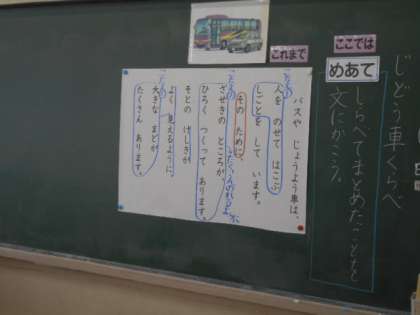 じどう車くらべ
ここでは
めあて
しらべてまとめたことを
文にかこう。
これまで
バスや じょうよう車は、
人を のせて はこぶ
しごとを して います。
その ために、
ざせきの ところが
ひろく つくって あります。
そとの けしきが
よく 見えるように、
大きな まどが
たくさん あります。